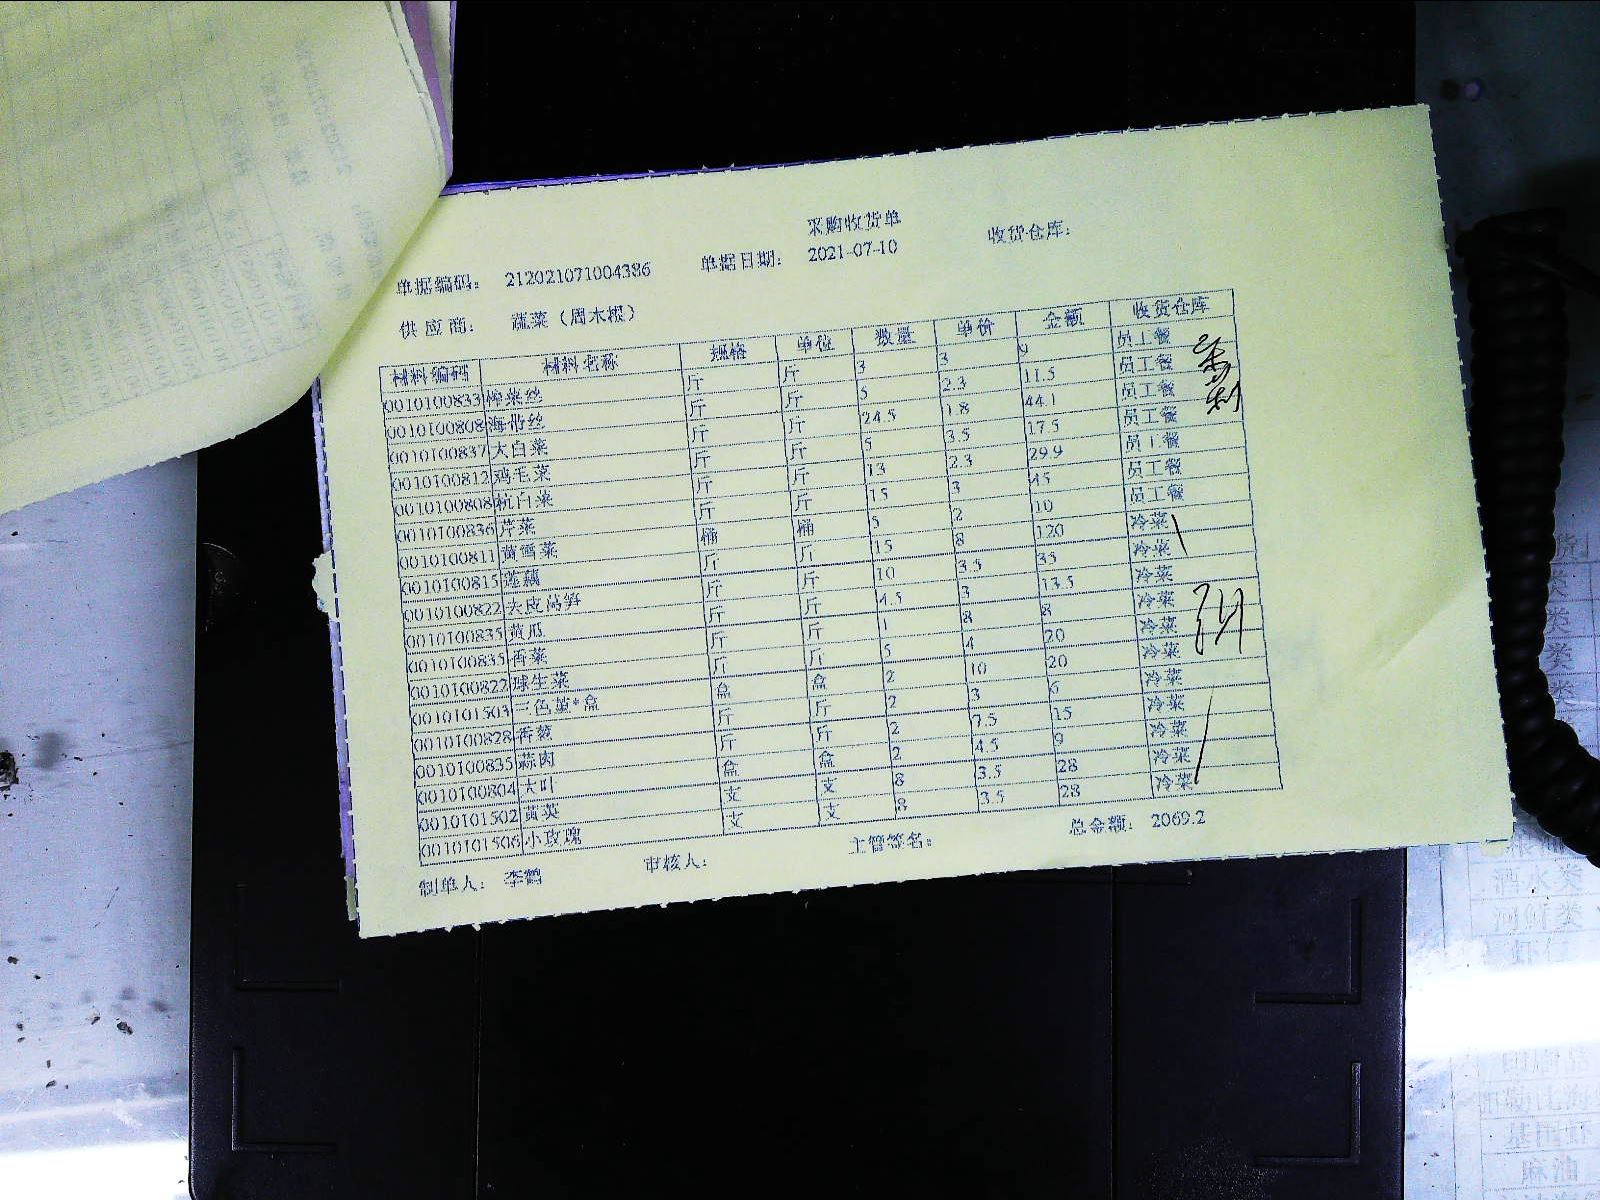 采购收货单
单据编码： 212021071004386 单据日期： 2021-07-10 收货仓库：
供应商： 蔬菜（周木根）
材料编码 材料名称 规格 单位 数量 单价 金额 收货仓库
0010100833 榨菜丝 斤 斤 3 3 9 员工餐
0010100808 海带丝 斤 斤 5 2.3 11.5 员工餐
0010100837 大白菜 斤 斤 24.5 1.8 44.1 员工餐
0010100812 鸡毛菜 斤 斤 5 3.5 17.5 员工餐
0010100808 杭白菜 斤 斤 13 2.3 29.9 员工餐
0010100836 芹菜 斤 斤 15 3 45 员工餐
0010100811 桶 桶 5 2 10 员工餐
0010100815 莲藕 斤 斤 15 8 120 冷菜
0010100822 去皮莴笋 斤 斤 10 3.5 35 冷菜
0010100835 黄瓜 斤 斤 4.5 3 13.5 冷菜
0010100835 香菜 斤 斤 1 8 8 冷菜
0010100822 球生菜 斤 斤 5 4 20 冷菜
0010101503 三色堇*盒 盒 盒 2 10 20 冷菜
0010100828 香葱 斤 斤 2 3 6 冷菜
0010100835 蒜肉 斤 斤 2 7.5 15 冷菜
0010100804 大叶 盒 盒 2 4.5 9 冷菜
0010101502 黄英 支 支 8 3.5 28 冷菜
0010101506 小玫瑰 支 支 8 3.5 28 冷菜
制单人： 李鹤 审核人： 主管签名： 总金额： 2069.2
酒水类
河鲜类
麻油